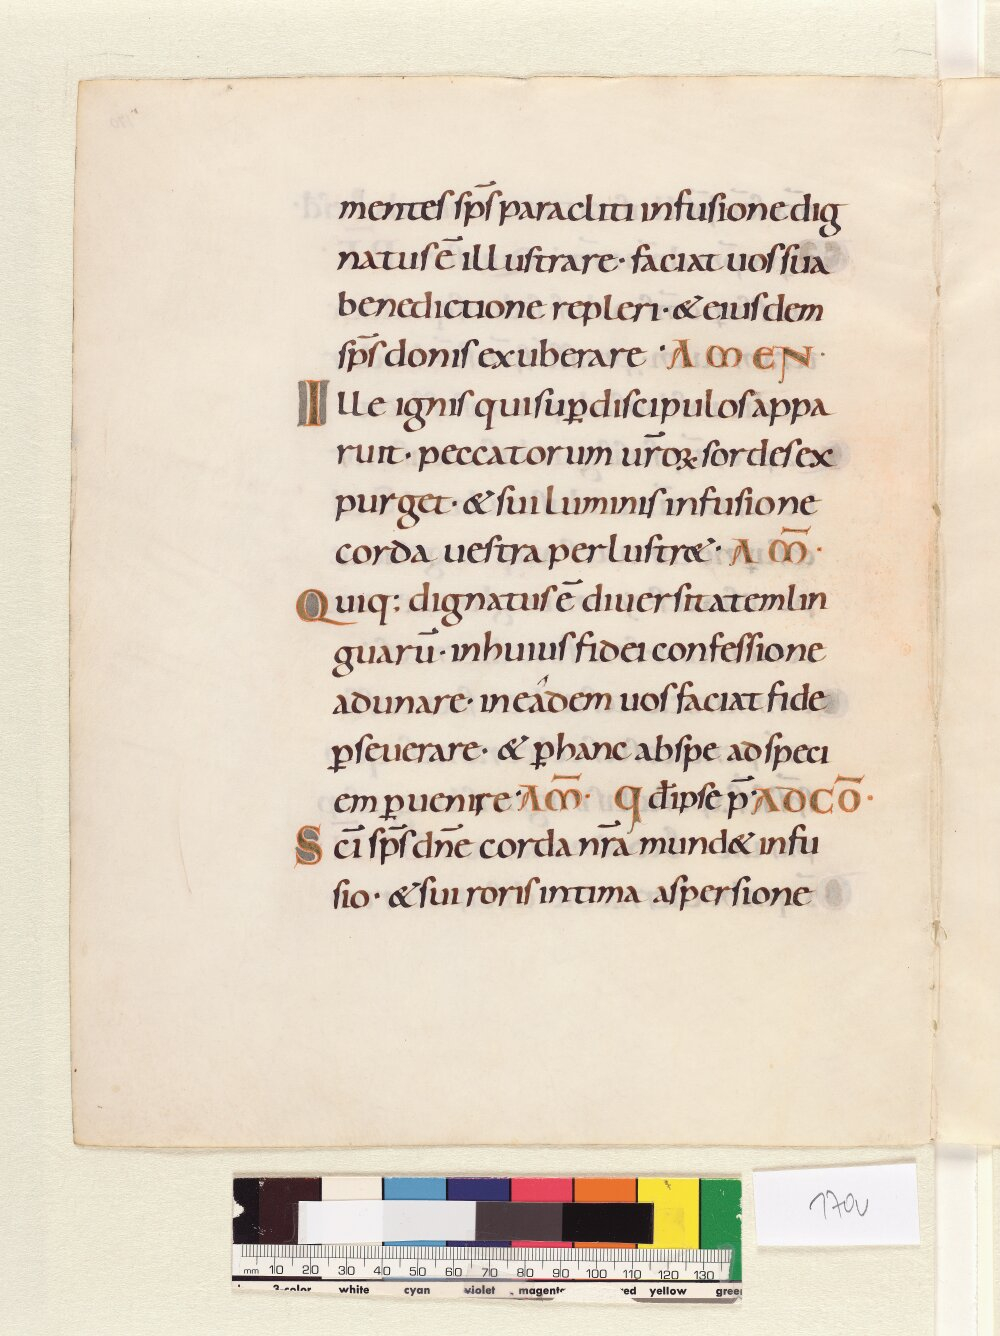 mentes sp̄s paracliti infusione dig
natus ē illustrare · faciat uos sua
benedictione repleri · & eiusdem
sp̄s donis exuberare · AMEN ·
Ille ignis qui sup̲ discipulos appa
ruit · peccatorum ur̄oꝝ sordes ex
purget · & sui luminis infusione
corda uestra perlustr& · AM̄ ·
Quiq; dignatus ē diuersitatem lin
guarū · in huius fidei confessione
adunare · in eadem uos faciat fide
ꝑseuerare · & ꝑ hanc ab spe ad speci
em ꝑuenire · AM̄ · Qđ ipse p̄ · AD CŌ ·
Sc̄i sp̄s dn̄e corda nr̄a mund& infu
sio · & sui roris intima aspersione
170v
mm 10 20 30 40 50 60 70 80 90 100 110 120 130
3-color white cyan violet magenta red yellow green